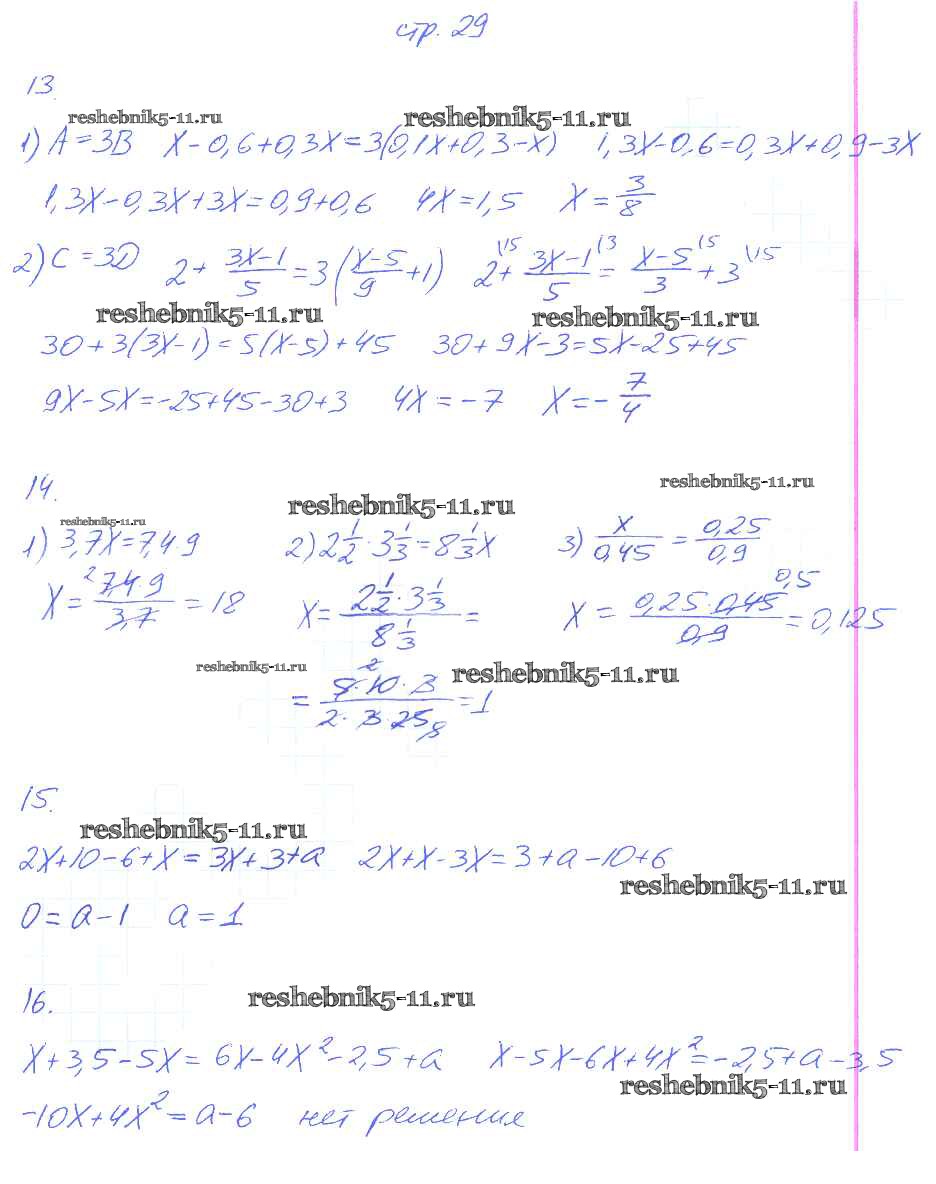 стр. 29
13.
reshebnik5-11.ru reshebnik5-11.ru
1) A = 3B x - 0,6 + 0,3x = 3(0,1x + 0,3 - x) 1,3x - 0,6 = 0,3x + 0,9 - 3x
1,3x - 0,3x + 3x = 0,9 + 0,6 4x = 1,5 x = 3/8
2) C = 3D 2 + (3x-1)/5 = 3((x-5)/9 + 1) 2\15 + (3x-1)/5 \3 = (x-5)/3 \5 + 3\15
reshebnik5-11.ru reshebnik5-11.ru
30 + 3(3x-1) = 5(x-5) + 45 30 + 9x - 3 = 5x - 25 + 45
9x - 5x = -25 + 45 - 30 + 3 4x = -7 x = -7/4
14.
reshebnik5-11.ru reshebnik5-11.ru reshebnik5-11.ru
1) 3,7x = 7,4·9 2) 2 1/2 · 3 1/3 = 8 1/3 x 3) x/0,45 = 0,25/0,9
x = 2 7,4·9/3,7 = 18 x = (2 1/2 · 3 1/3)/(8 1/3) = x = 0,25·0,45/0,9 0,5 = 0,125
reshebnik5-11.ru reshebnik5-11.ru
= 5·10·3/2·3·25 = 1
15.
reshebnik5-11.ru
2x + 10 - 6 + x = 3x + 3 + a 2x + x - 3x = 3 + a - 10 + 6
reshebnik5-11.ru
0 = a - 1 a = 1
16.
reshebnik5-11.ru
x + 3,5 - 5x = 6x - 4x² - 2,5 + a x - 5x - 6x + 4x² = -2,5 + a - 3,5
reshebnik5-11.ru
-10x + 4x² = a - 6 нет решения